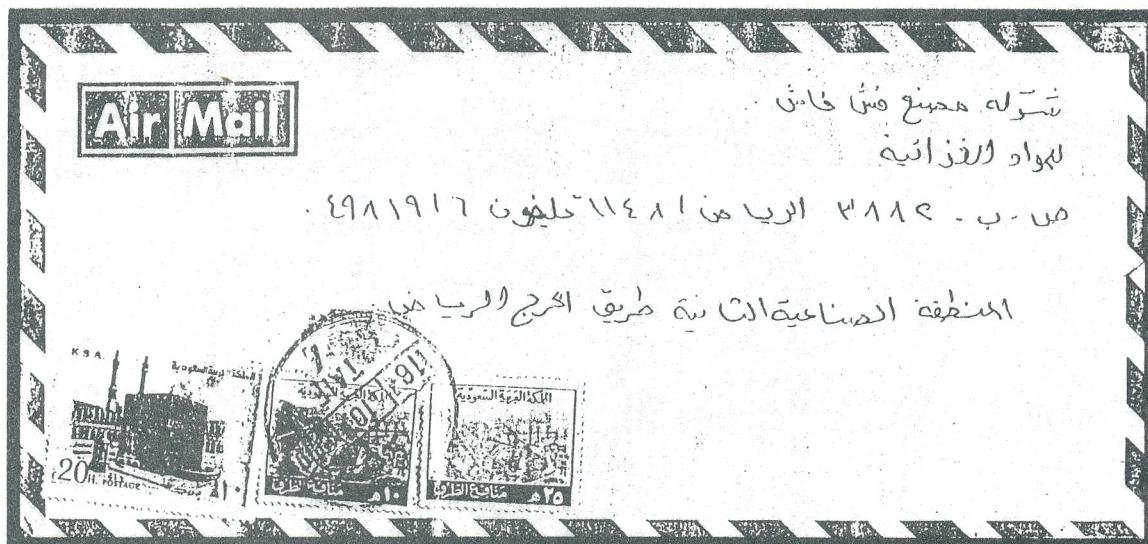 Air Mail
شركه مصنع فش فاش
للمواد الغذائية
ص . ب . ٣٨٨٢ الرياض ١١٤٨١ تليفون ٤٩٨١٩١٦ .
المنطقة الصناعية الثانية طريق الخرج الرياض
K S A.
المملكة العربية السعودية
20H. POSTAGE
المملكة العربية السعودية
١٠هـ
المملكة العربية السعودية
٢٥هـ